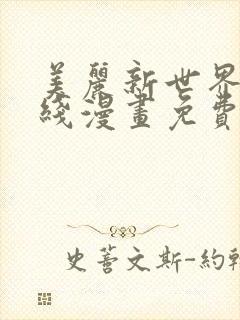 美麗新世界
綫漫畫免費
史蒂文斯-約翰